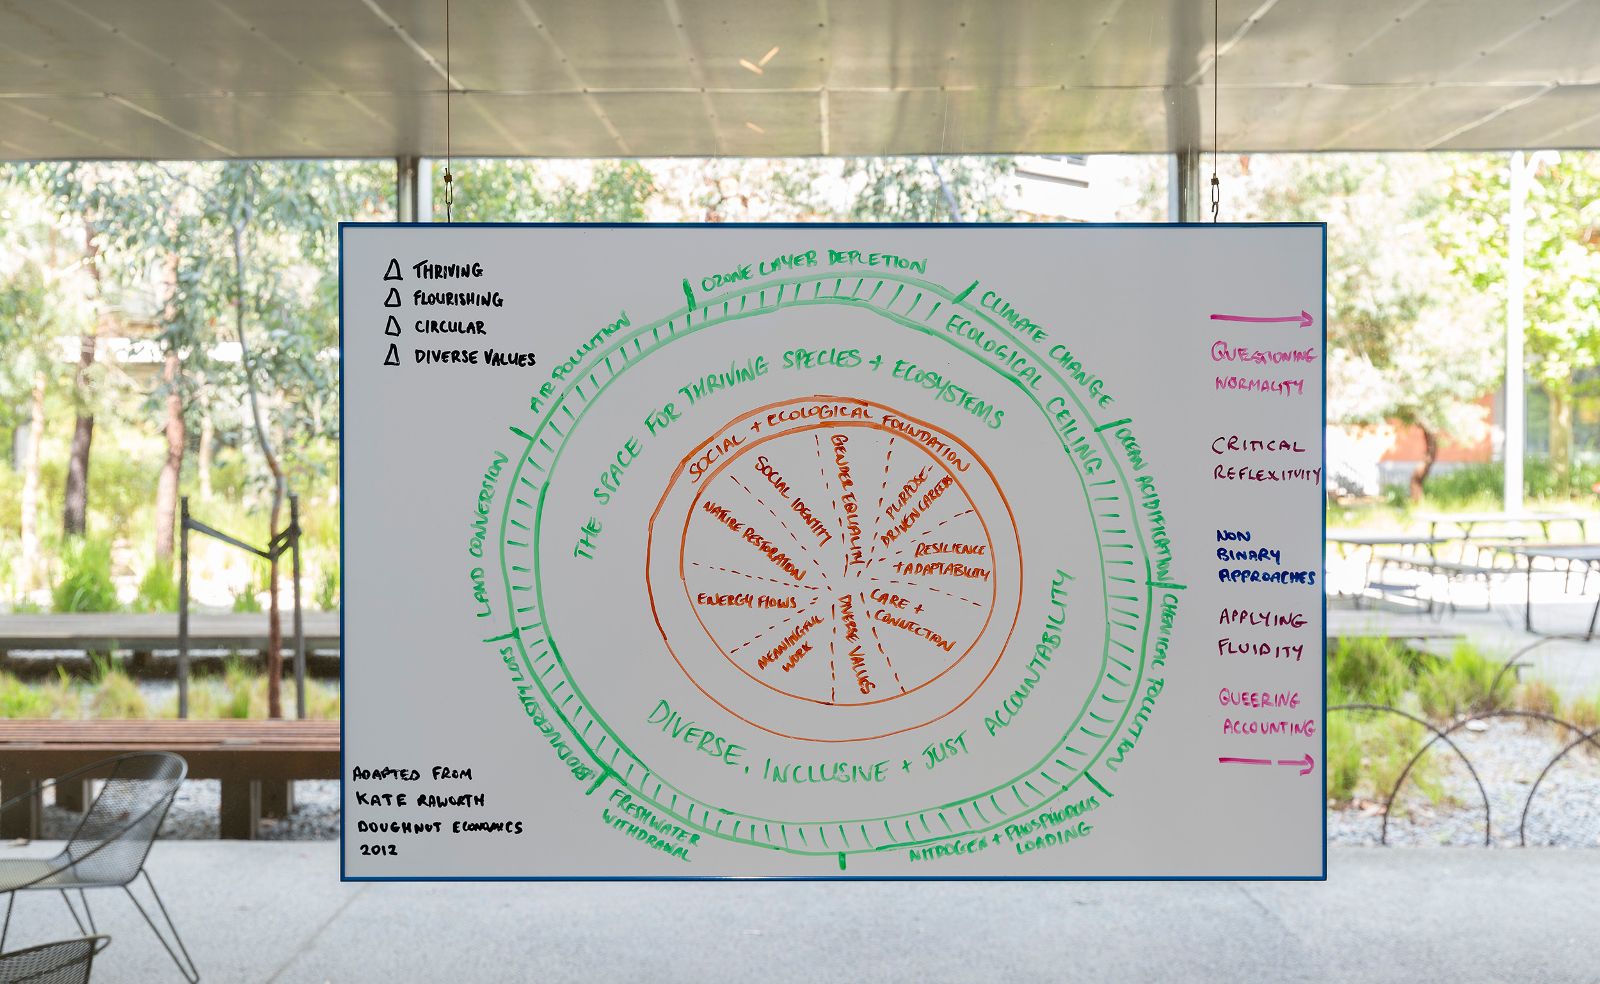 Δ THRIVING
Δ FLOURISHING
Δ CIRCULAR
Δ DIVERSE VALUES
OZONE LAYER DEPLETION
CLIMATE CHANGE
OCEAN ACIDIFICATION
CHEMICAL POLLUTION
NITROGEN + PHOSPHOROUS
LOADING
FRESHWATER
WITHDRAWAL
BIODIVERSITY LOSS
LAND CONVERSION
AIR POLLUTION
ECOLOGICAL CEILING
THE SPACE FOR THRIVING SPECIES + ECOSYSTEMS
DIVERSE, INCLUSIVE + JUST ACCOUNTABILITY
SOCIAL + ECOLOGICAL FOUNDATION
GENDER EQUALITY
PURPOSE-
DRIVEN CAREERS
RESILIENCE
+ ADAPTABILITY
CARE +
CONNECTION
DIVERSE VALUES
MEANINGFUL
WORK
ENERGY FLOWS
NATURE RESTORATION
SOCIAL IDENTITY
→
QUESTIONING
NORMALITY
CRITICAL
REFLEXITUITY
NON
BINARY
APPROACHES
APPLYING
FLUIDITY
QUEERING
ACCOUNTING
→
ADAPTED FROM
KATE RAWORTH
DOUGHNUT ECONOMICS
2012